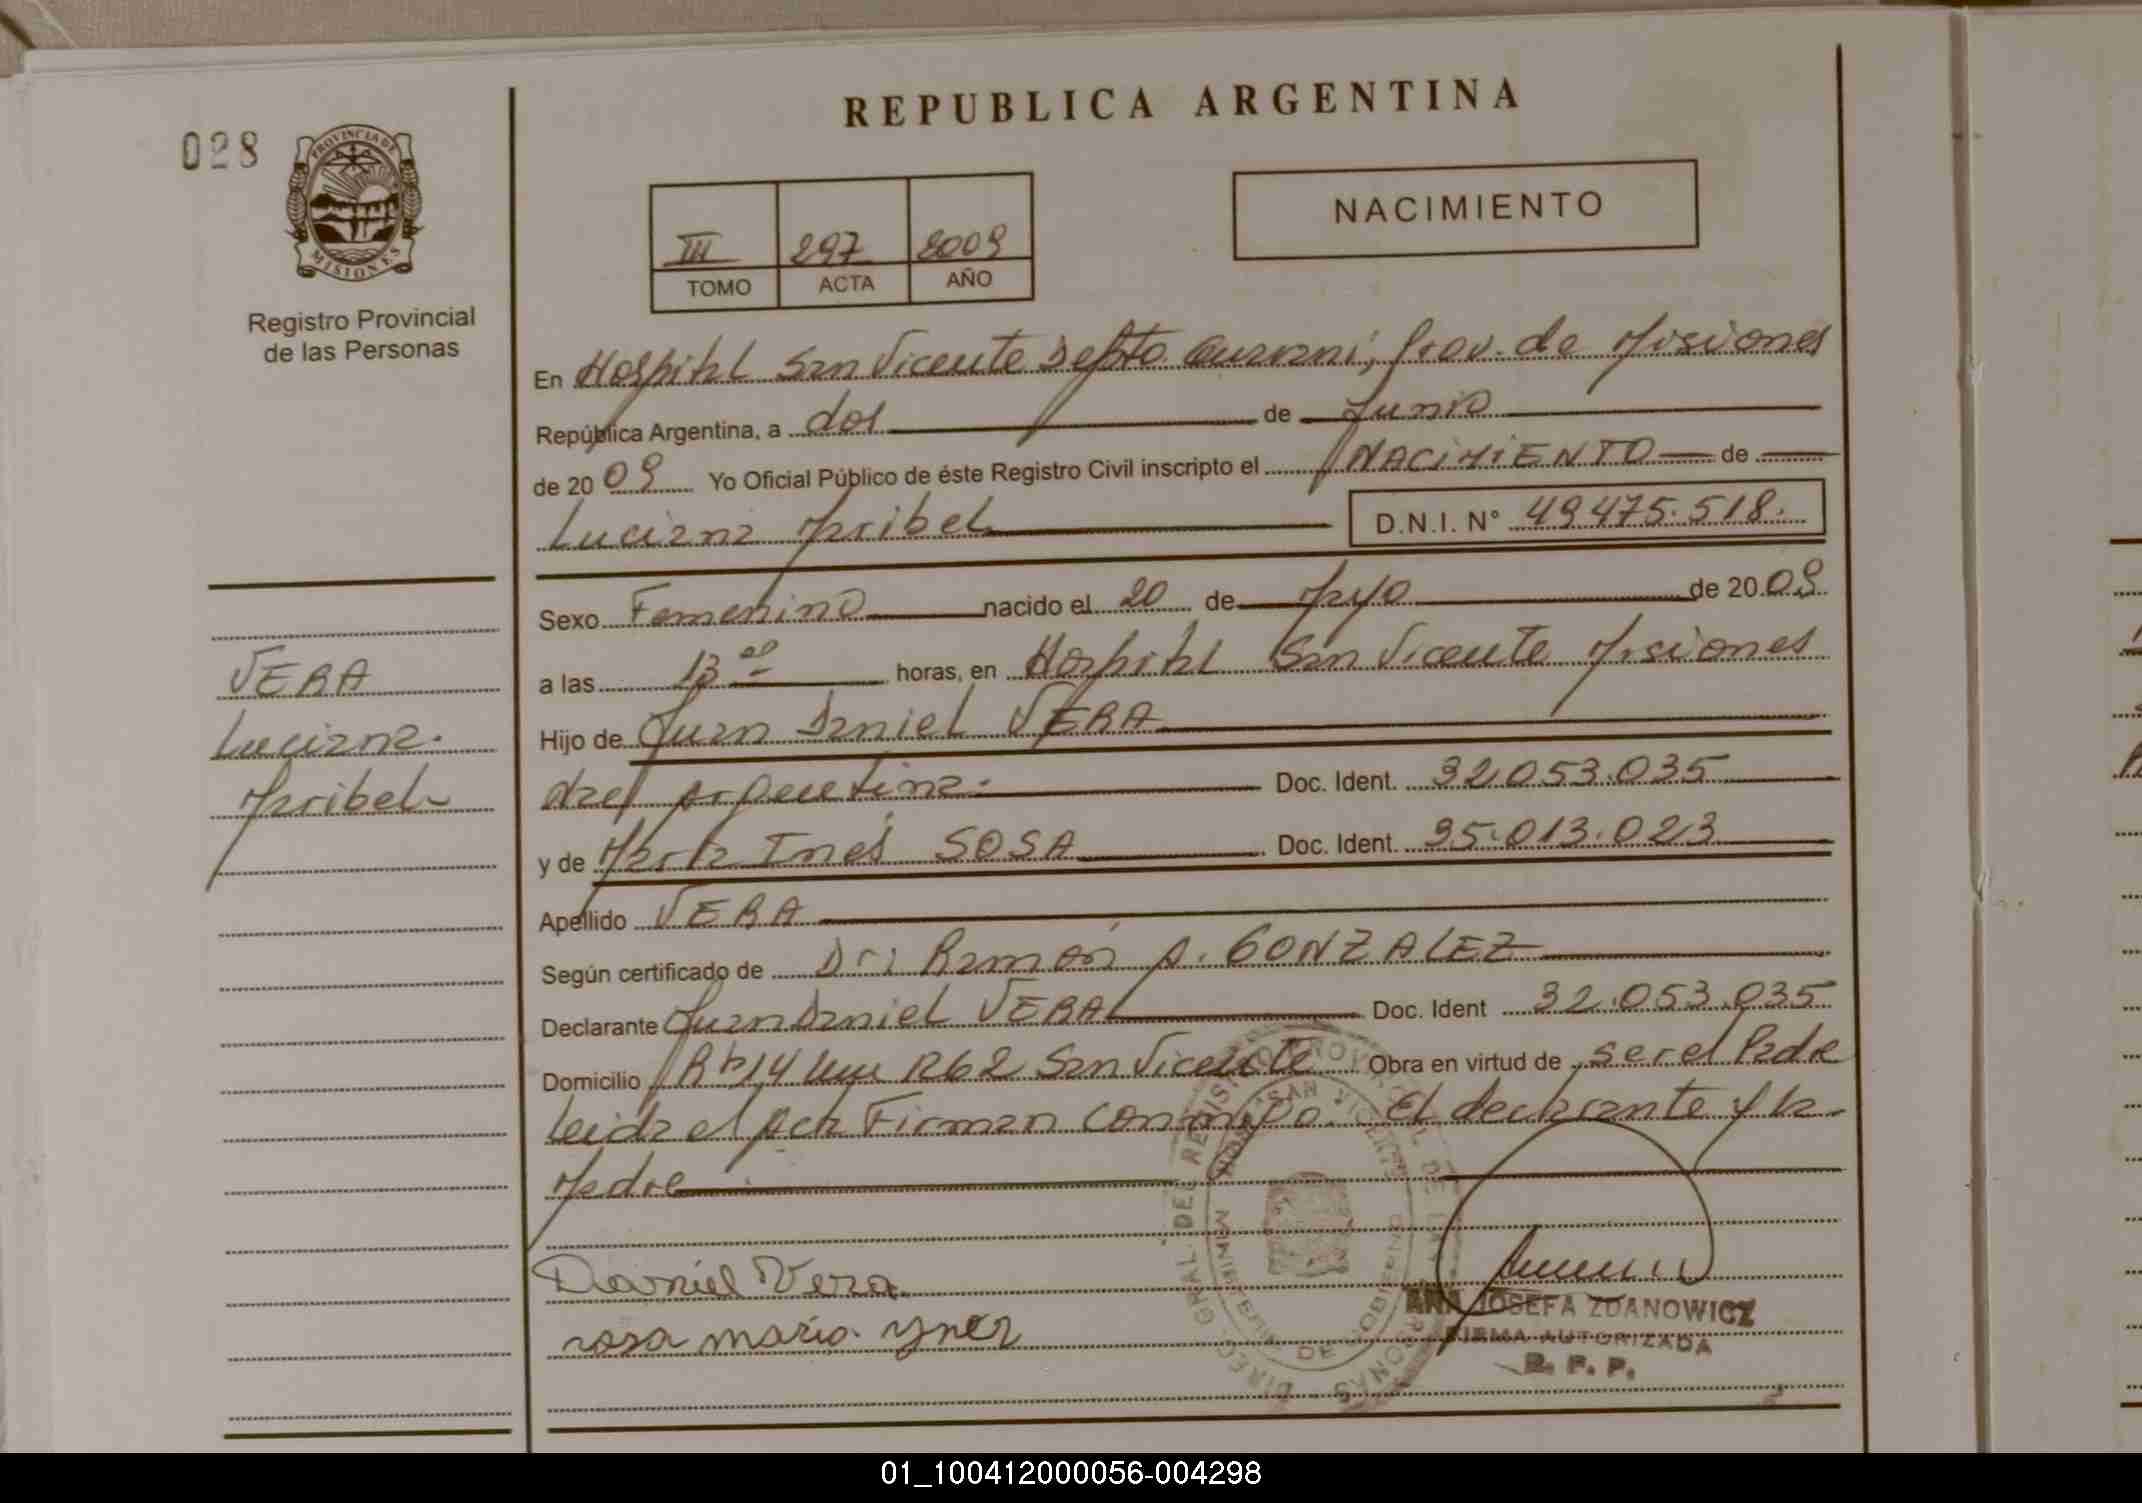 REPUBLICA ARGENTINA
028
PROVINCIA DE
MISIONES
Registro Provincial
de las Personas
III 297 2009
TOMO ACTA AÑO
NACIMIENTO
En Hospital San Vicente Depto Guaraní, Prov. de Misiones
República Argentina, a dos de Junio
de 2009 Yo Oficial Público de éste Registro Civil inscripto el NACIMIENTO de
Luciana Maribel D.N.I. N° 49475.518.
Sexo Femenino nacido el 20 de Mayo de 2009
a las 13 horas, en Hospital San Vicente Misiones
Hijo de Juan Daniel VERA
Argentina. Doc. Ident. 32.053.035
y de María Inés SOSA Doc. Ident. 35.013.023
Apellido VERA
Según certificado de Dr: Ramón A. GONZALEZ
Declarante Juan Daniel VERA Doc. Ident 32.053.035
Domicilio 14 Km 1262 San Vicente Obra en virtud de ser el Padre
Leida el Acta Firman conmigo. El declarante y la
Madre
VERA
Luciana
Maribel
Daniel Vera
sosa maria ynez
DIREC. GRAL. DEL REGISTRO PROVINCIAL DE LAS PERSONAS
HOSP. SAN VICENTE
MINISTERIO DE GOBIERNO
ANA JOSEFA ZDANOWICZ
FIRMA AUTORIZADA
R. P. P.
01_100412000056-004298